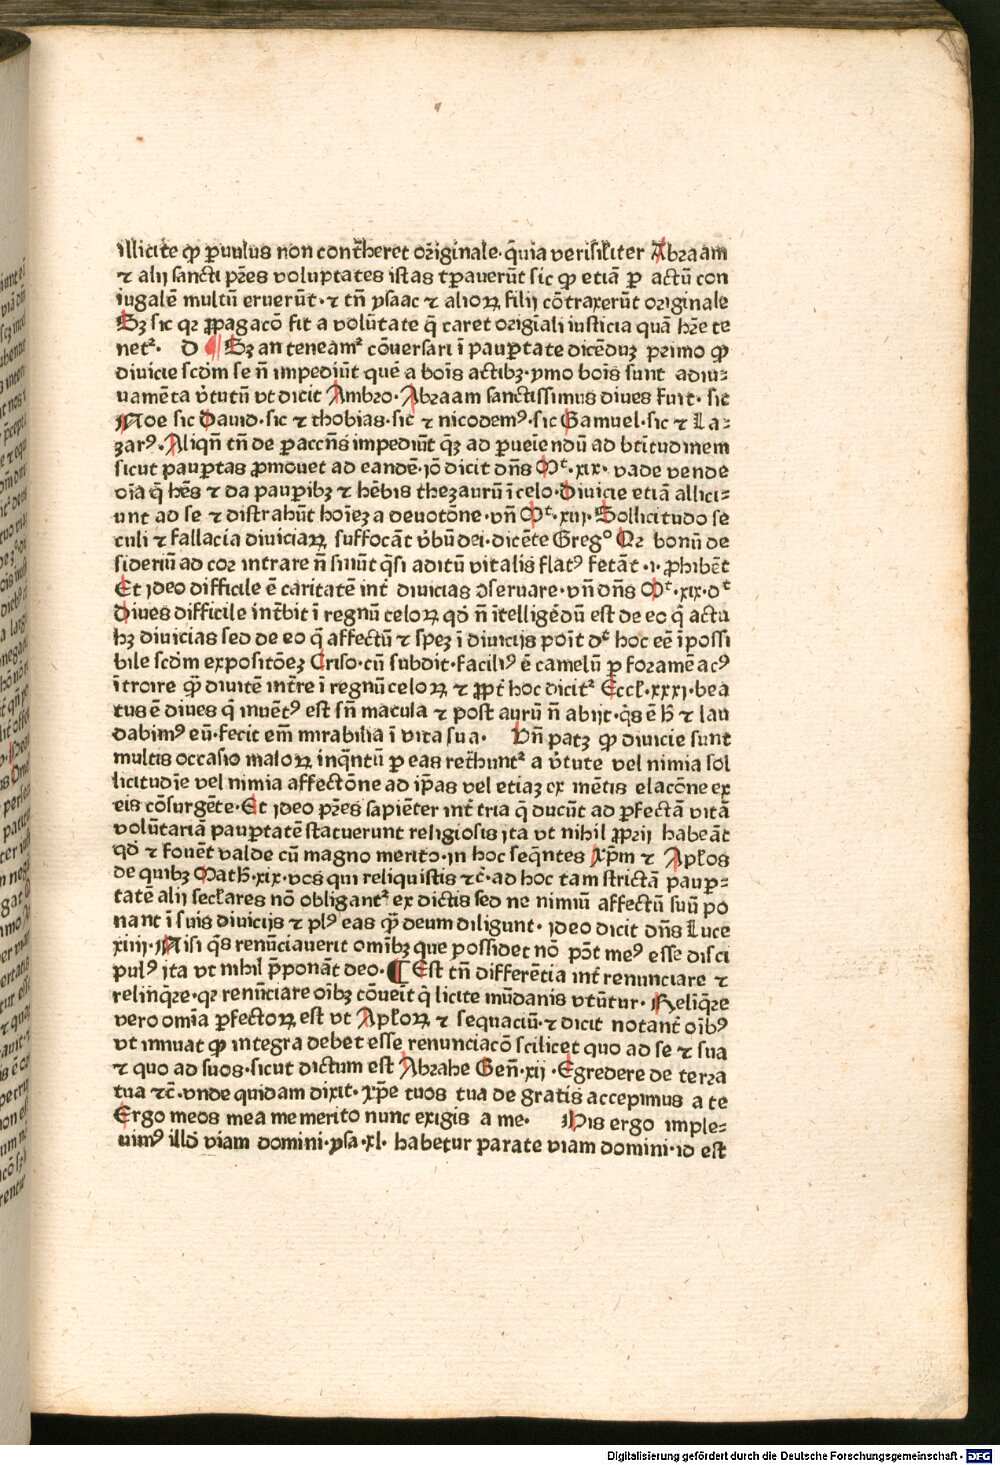 illicite ꝙ ꝑuulus non conťheret originale·q̄uia verisiliter Abraam
⁊ alij sancti pr̄es voluptates istas tꝑauerūt sic ꝙ etiā ꝑ actū con
iugalē multū eruerūt·⁊ tn̄ ysaac ⁊ alioꝝ filij cōtraxerūt originale
Sꝫ sic qꝛ ꝓpagacō fit a volūtate q̄ caret origiali iusticia quā hr̄e te
netᷣ. D Sꝫ an teneamᷣ cōuersari ī pauꝑtate dicēduꝫ primo ꝙ
diuicie scd̄m se n̄ impediūt quē a boīs actibꝫ·ymo boīs sunt adiu⸗
uamēta v̓tutū vt dicit Ambro·Abraam sanctissimus diues fuit· sic
Noe sic Dauid·sic ⁊ thobias·sic ⁊ nicodemꝰ·sic Gamuel·sic ⁊ La⸗
zarꝰ·Aliqn̄ tn̄ de ꝑ accn̄s impediūt q̄ꝫ ad ꝑueiendū ad btītudinem
sicut pauꝑtas ꝓmouet ad eandē·jō dicit dn̄s Mᵗ·xix· vade vende
oīa q̄ hēs ⁊ da pauꝑibꝫ ⁊ hēbis thezaurū ī celo·Diuicie etiā allici⸗
unt ad se ⁊ distrahūt hoīeꝫ a deuotōne·vn̄ Mᵗ·xiij·Sollicitudo se
culi ⁊ fallacia diuiciaꝝ suffocāt v̓bū dei·dicēte Gregº Qꝛ bonū de
sideriū ad cor intrare n̄ sinūt q̄si aditū vitalis flatꝰ fetāt·i·ꝓhibēt
Et ideo difficile ē caritatē int̓ diuicias ↄseruare·vn̄ dn̄s Mᵗ·xix·dᵗ
Diues difficile int̓bit ī regnū celoꝝ qd̄ n̄ ītelligēdū est de eo q̄ actu
hꝫ diuicias sed de eo q̄ affectū ⁊ speꝫ ī diuicijs poīt dᵗ hoc eē īpossi
bile scd̄m expositōeꝫ Criso·cū subdit·faciliꝰ ē camelū ꝑ foramē acꝰ
ītroire ꝙ̄ diuitē int̓re ī regnū celoꝝ ⁊ ꝓpt̓ hoc dicitᷣ Eccł·xxxj·bea
tus ē diues q̄ inuētꝰ est sn̄ macula ⁊ post aurū n̄ abijt·q̄s ē h̄ ⁊ lau
dabimꝰ eū·fecit em̄ mirabilia ī vita sua· Vn̄ patꝫ ꝙ diuicie sunt
multis occasio maloꝝ inq̄ntū ꝑ eas ret̓huntᷣ a v̓tute vel nimia sol
licitudīe vel nimia affectōne ad ip̄as vel etiaꝫ ex mētis elacōne ex
eis cōsurgēte·Et jdeo pr̄es sapiēter int̓ tria q̄ ducūt ad ꝑfectā vitā
volūtariā pauꝑtatē statuerunt religiosis jta vt nihil ꝓprij habeāt
qd̄ ⁊ fouēt valde cū magno merito·in hoc seq̄ntes xp̄m ⁊ Apłos
de quibꝫ Math̄·xix·vos qui reliquistis ⁊c̄·ad hoc tam strictā pauꝑ⸗
tatē alij secłares nō obligantᷣ ex dictis sed ne nimiū affectū suū po
nant ī suis diuicijs ⁊ plꝰ eas ꝙ̄ deum diligunt·jdeo dicit dn̄s Luce
xiiij·Nisi q̄s renūciauerit omībꝫ que possidet nō pōt meꝰ esse disci
pulꝰ jta vt nihil p̄ponāt deo·¶ Est tn̄ differētia int̓ renunciare ⁊
relinq̄re·qꝛ renūciare oībꝫ cōueīt q̄ licite mūdanis vtūtur·Reliq̄re
vero omīa ꝑfectoꝝ est vt Apłoꝝ ⁊ sequaciū·⁊ dicit notant̓ oībꝰ
vt innuat ꝙ integra debet esse renunciacō scilicet quo ad se ⁊ sua
⁊ quo ad suos·sicut dictum est Abrahe Gen̄·xij·Egredere de terra
tua ⁊c̄·vnde quidam dixit·xp̄e tuos tua de gratis accepimus a te
Ergo meos mea me merito nunc exigis a me· His ergo imple⸗
uimꝰ illd̄ viam domini·ysa·xl· habetur parate viam domini·id est
Digitalisierung gefördert durch die Deutsche Forschungsgemeinschaft - DFG